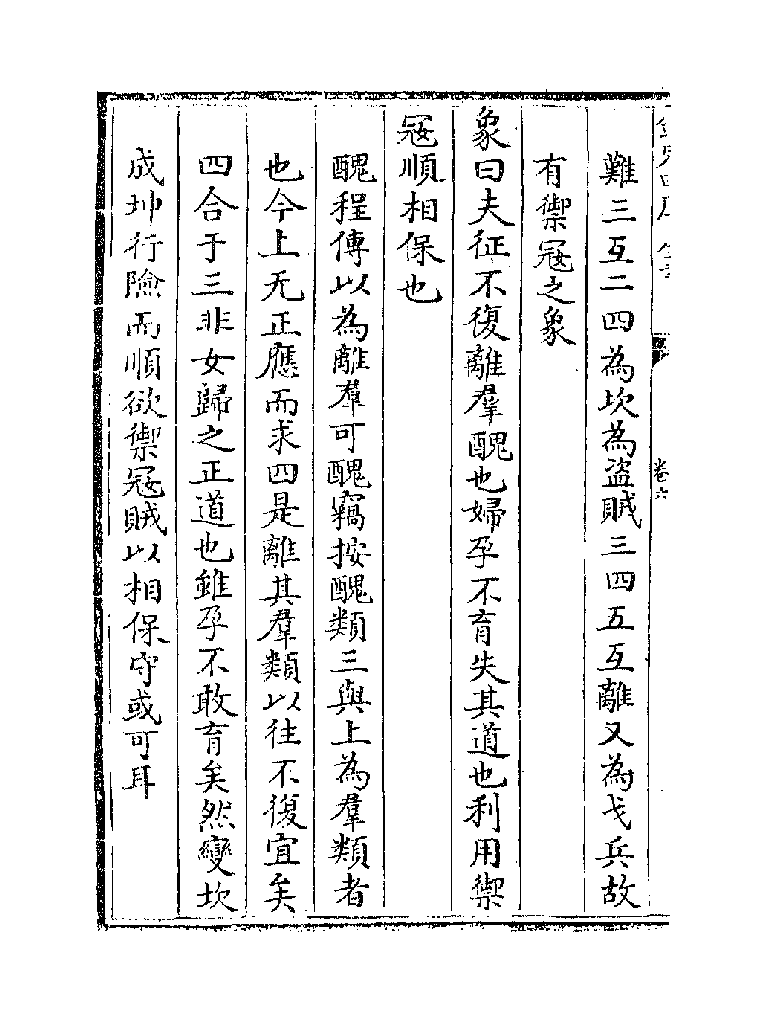 難三互二四為坎為盗賊三四五互離又為戈兵故
有禦寇之象
象曰夫征不復離羣醜也婦孕不育失其道也利用禦
寇順相保也
醜程傳以為離羣可醜竊按醜類三與上為羣類者
也今上无正應而求四是離其羣類以往不復宜矣
四合于三非女歸之正道也雖孕不敢育矣然變坎
成坤行險而順欲禦寇賊以相保守或可耳
卷六